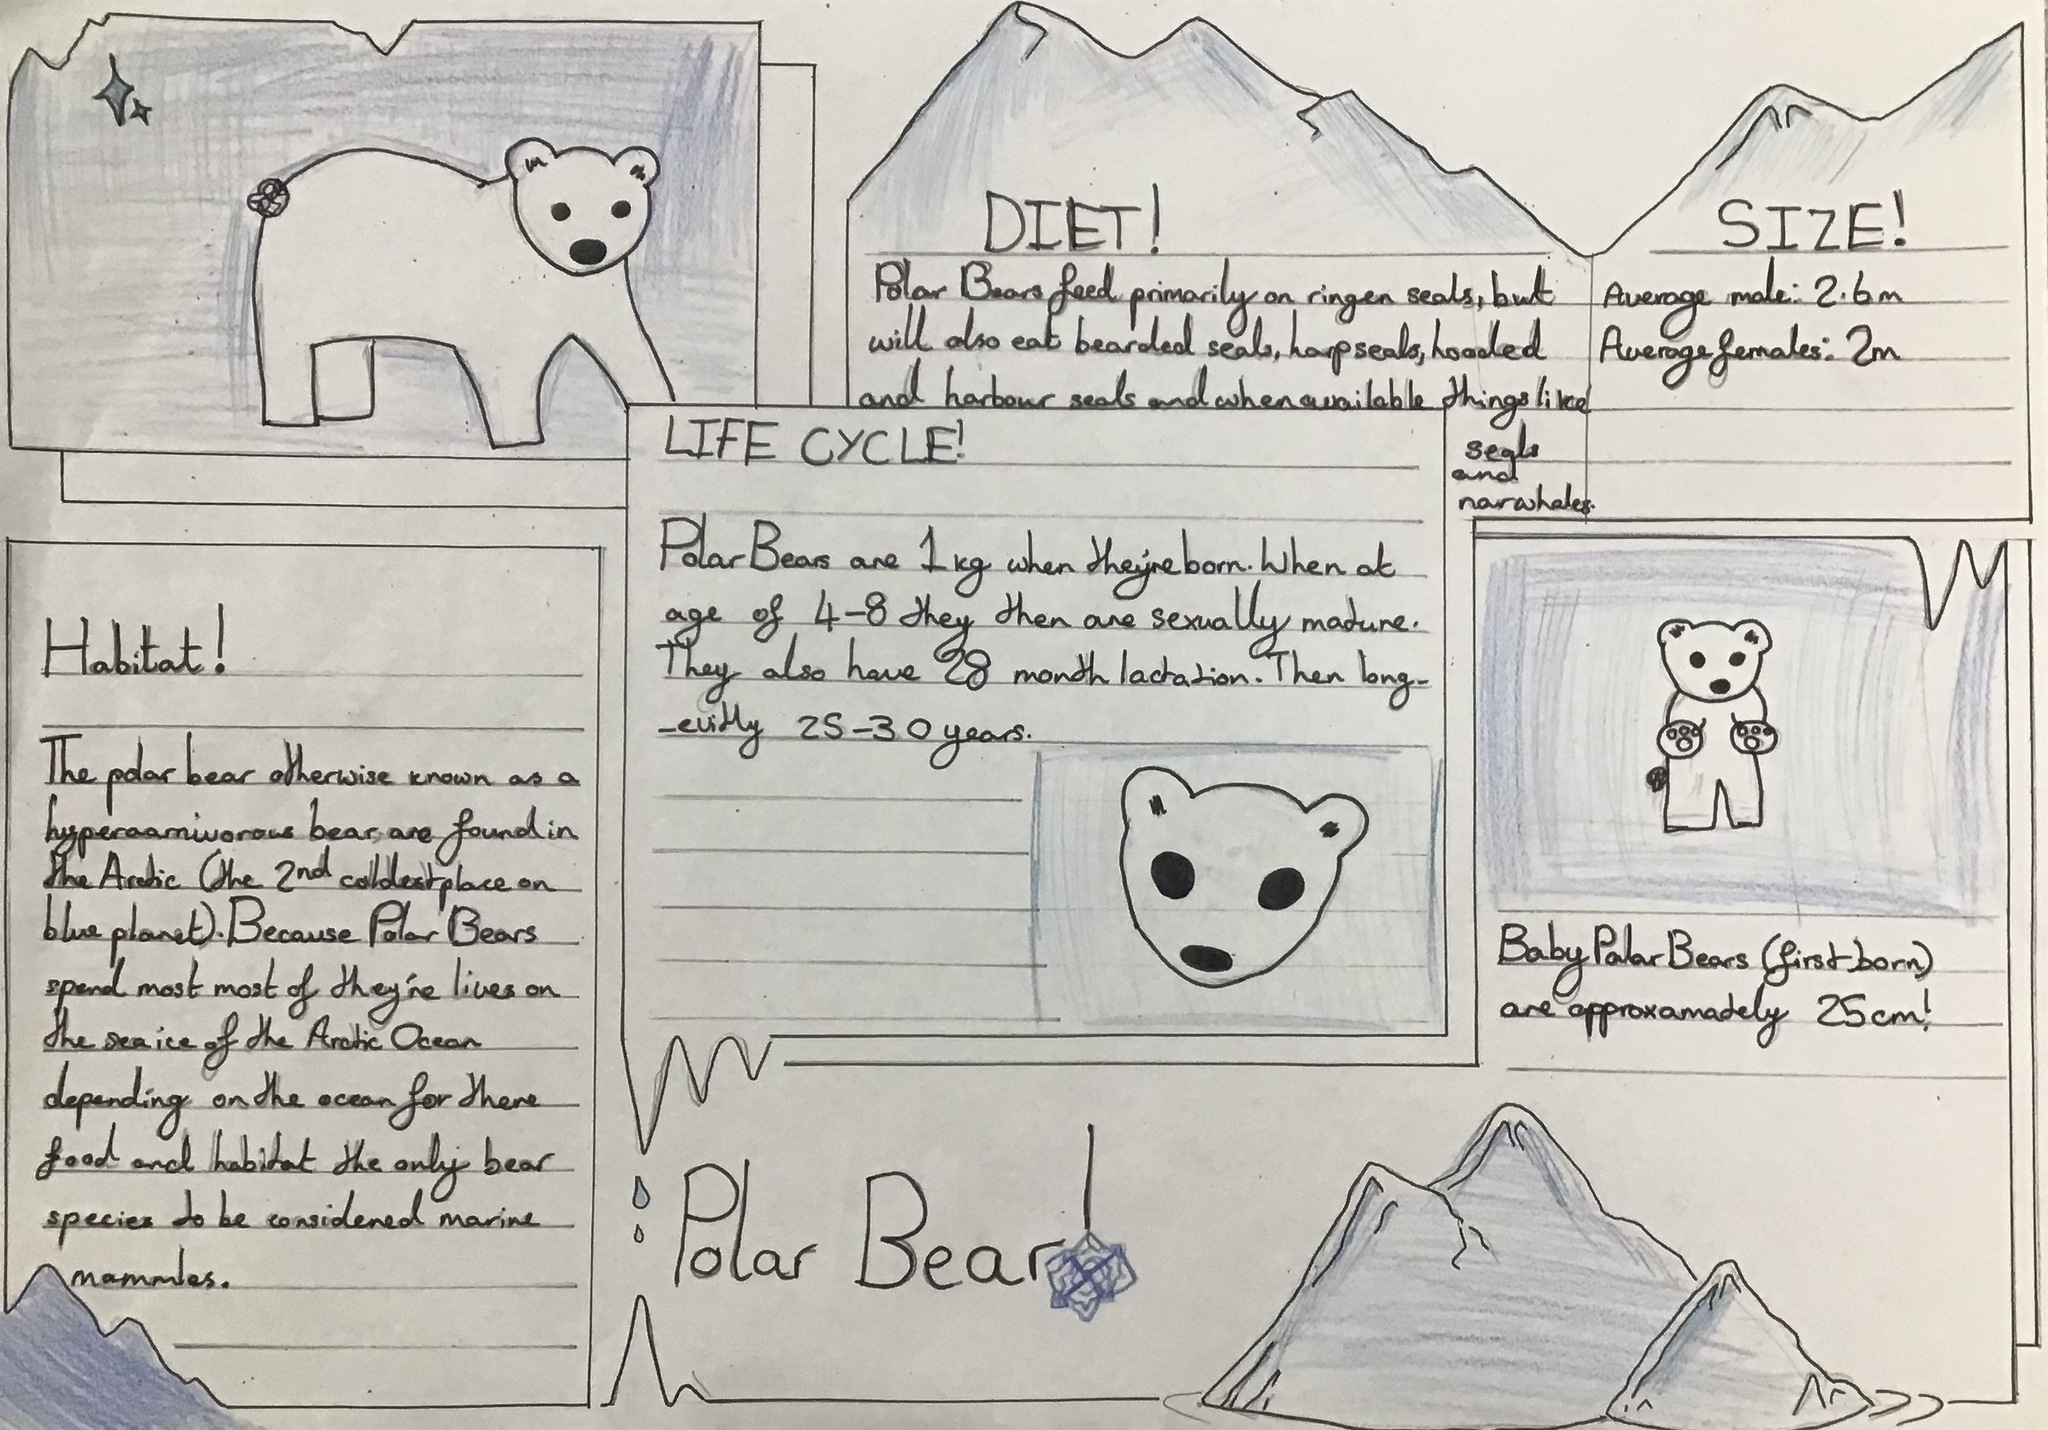 DIET!
Polar Bears feed primarily on ringen seals, but
will also eat bearded seals, harp seals, hooded
and harbour seals and when available things like
seals
and
narwhales.
SIZE!
Average male: 2.6m
Average females: 2m
LIFE CYCLE!
Polar Bears are 1kg when they're born. When at
age of 4-8 they then are sexually mature.
They also have 28 month lactation. Then long-
-evitly 25-30 years.
Habitat!
The polar bear otherwise known as a
hypercarnivorous bear, are found in
the Arctic (the 2nd coldest place on
blue planet). Because Polar Bears
spend most most of they're lives on
the sea ice of the Arctic Ocean
depending on the ocean for there
food and habitat the only bear
species to be considered marine
mammles.
Baby Polar Bears (first born)
are approxamadely 25cm!
Polar Bear